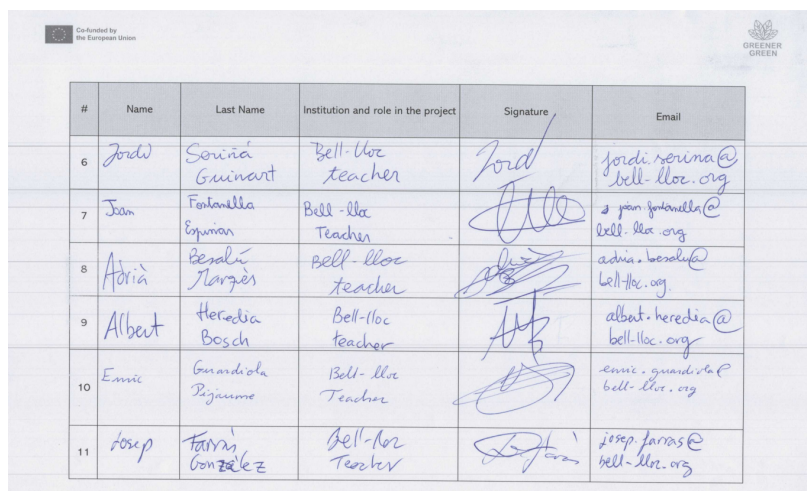 Co-funded by
the European Union
GREENER
GREEN
# Name Last Name Institution and role in the project Signature Email
6 Jordi Seriñá Guinart Bell-lloc teacher Jord jordi.serina@ bell-lloc.org
7 Joan Fontanella Bell-lloc Teacher joan.fontanella@ bell-lloc.org
8 Adrià Besalú Marquès Bell-lloc teacher adria.besalu@ bell-lloc.org
9 Albert Heredia Bosch Bell-lloc teacher albert.heredia@ bell-lloc.org
10 Enric Guardiola Pijaume Bell-lloc Teacher enric.guardiola@ bell-lloc.org
11 Josep Farràs González Bell-lloc Teacher josep.farras@ bell-lloc.org